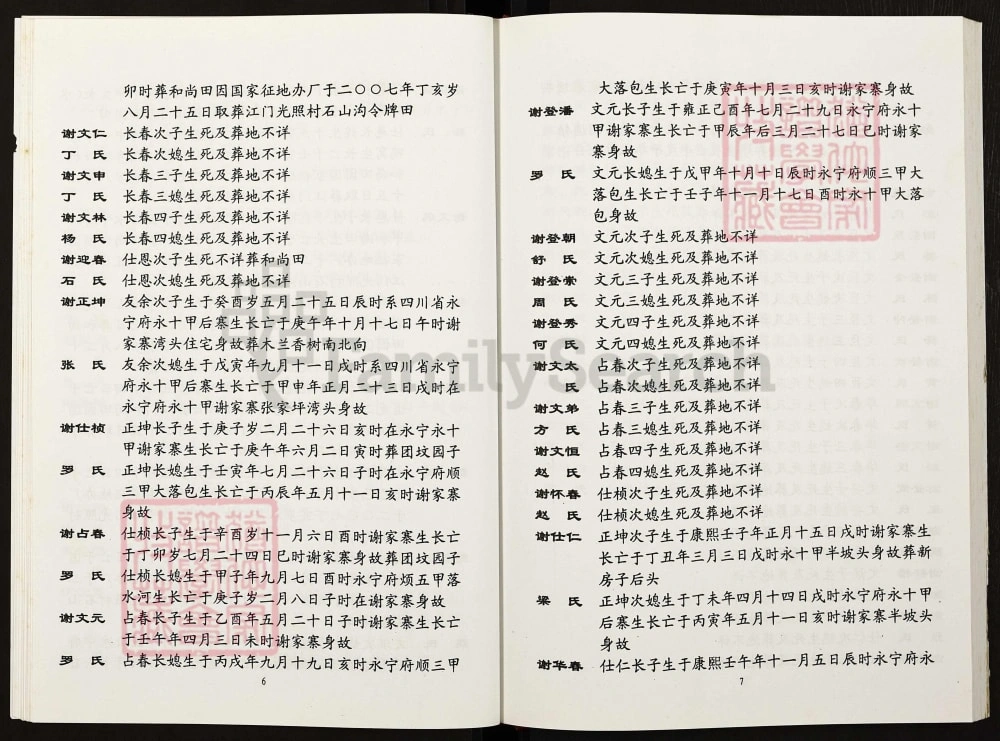 卯时葬和尚田因国家征地办厂于二〇〇七年丁亥岁
八月二十五日取葬江门光照村石山沟令牌田
谢文仁 长春次子生死及葬地不详
丁 氏 长春次媳生死及葬地不详
谢文申 长春三子生死及葬地不详
丁 氏 长春三媳生死及葬地不详
谢文林 长春四子生死及葬地不详
杨 氏 长春四媳生死及葬地不详
谢迎春 仕恩次子生死不详葬和尚田
石 氏 仕恩次媳生死及葬地不详
谢正坤 友余次子生于癸酉岁五月二十五日辰时系四川省永
宁府永十甲后寨生长亡于庚午年十月十七日午时谢
家寨湾头住宅身故葬木兰香树南北向
张 氏 友余次媳生于戊寅年九月十一日戌时系四川省永宁
府永十甲后寨生长亡于甲申年正月二十三日戌时在
永宁府永十甲谢家寨张家坪湾头身故
谢仕桢 正坤长子生于庚子岁二月二十六日亥时在永宁永十
甲谢家寨生长亡于庚午年六月二日寅时葬团坟园子
罗 氏 正坤长媳生于壬寅年七月二十六日子时在永宁府顺
三甲大落包生长亡于丙辰年五月十一日亥时谢家寨
身故
谢占春 仕桢长子生于辛酉岁十一月六日酉时谢家寨生长亡
于丁卯岁七月二十四日巳时谢家寨身故葬团坟园子
罗 氏 仕桢长媳生于甲子年九月七日酉时永宁府烦五甲落
水河生长亡于庚子岁二月八日子时在谢家寨身故
谢文元 占春长子生于乙酉年五月二十日子时谢家寨生长亡
于壬午年四月三日未时谢家寨身故
罗 氏 占春长媳生于丙戌年九月十九日亥时永宁府顺三甲
6
大落包生长亡于庚寅年十月二日亥时谢家寨身故
谢登潘 文元长子生于雍正己酉年七月二十九日永宁府永十
甲谢家寨生长亡于甲辰年后三月二十七日巳时谢家
寨身故
罗 氏 文元长媳生于戊甲年十月十日辰时永宁府顺三甲大
落包生长亡于壬子年十一月十七日酉时永十甲大落
包身故
谢登朝 文元次子生死及葬地不详
舒 氏 文元次媳生死及葬地不详
谢登棠 文元三子生死及葬地不详
周 氏 文元三媳生死及葬地不详
谢登秀 文元四子生死及葬地不详
何 氏 文元四媳生死及葬地不详
谢文太 占春次子生死及葬地不详
氏 占春次媳生死及葬地不详
谢文弟 占春三子生死及葬地不详
方 氏 占春三媳生死及葬地不详
谢文恒 占春四子生死及葬地不详
赵 氏 占春四媳生死及葬地不详
谢怀春 仕桢次子生死及葬地不详
赵 氏 仕桢次媳生死及葬地不详
谢仕仁 正坤次子生于康熙壬子年正月十五日戌时谢家寨生
长亡于丁丑年三月三日戌时永十甲半坡头身故葬新
房子后头
梁 氏 正坤次媳生于丁未年四月十四日戌时永宁府永十甲
后寨生长亡于丙寅年五月十一日亥时谢家寨半坡头
身故
谢华春 仕仁长子生于康熙壬午年十一月五日辰时永宁府永
7
FamilySearch